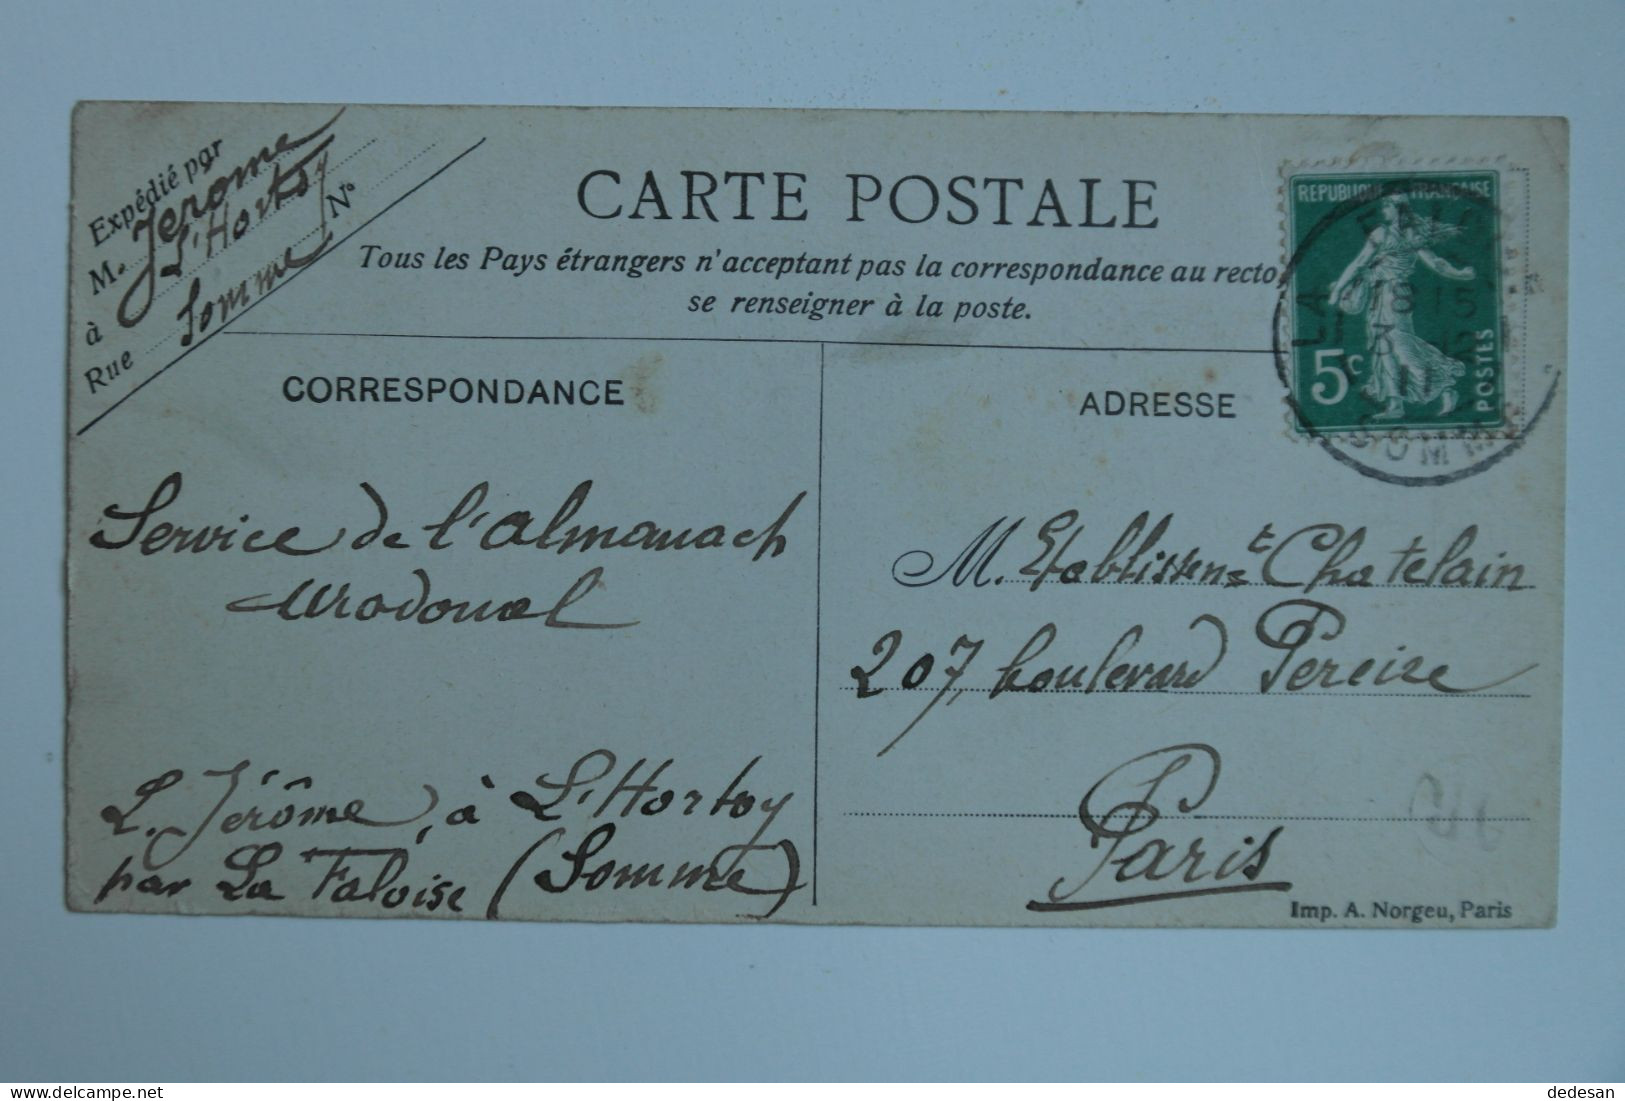 Expédié par
M. Jerome
à L'Hortoy
Rue Somme N°
CARTE POSTALE
Tous les Pays étrangers n'acceptant pas la correspondance au recto,
se renseigner à la poste.
REPUBLIQUE FRANÇAISE
5c
POSTES
LA FALOISE
18 15
3 12
11
SOMME
CORRESPONDANCE
Service de l'almanach
Urodonal
L. Jérôme, à L'Hortoy
par La Faloise (Somme)
ADRESSE
M. Etablissents Chatelain
207, boulevard Pereire
Paris
Imp. A. Norgeu, Paris
dedesan